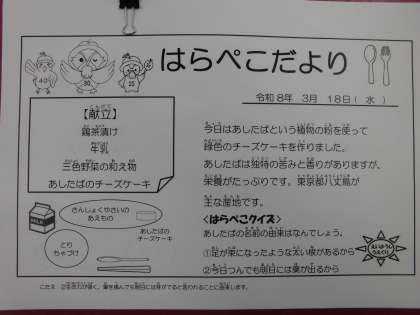 はらぺこだより
令和8年 3月 18日(水)
40 30 25
【献立】
鶏茶漬け
牛乳
三色野菜の和え物
あしたばのチーズケーキ
今日はあしたばという植物の粉を使って
緑色のチーズケーキを作りました。
あしたばは独特の苦みと香りがありますが、
栄養がたっぷりです。東京都八丈島が
主な産地です。
<はらぺこクイズ>
あしたばの名前の由来はなんでしょう。
①足が束になったような太い根があるから
②今日つんでも明日には葉が出るから
さんしょくやさいの
あえもの
あしたばの
チーズケーキ
とり
ちゃづけ
MILK
こたえ ②生命力が強く、葉を摘んでも明日には芽がでると言われることに由来します。